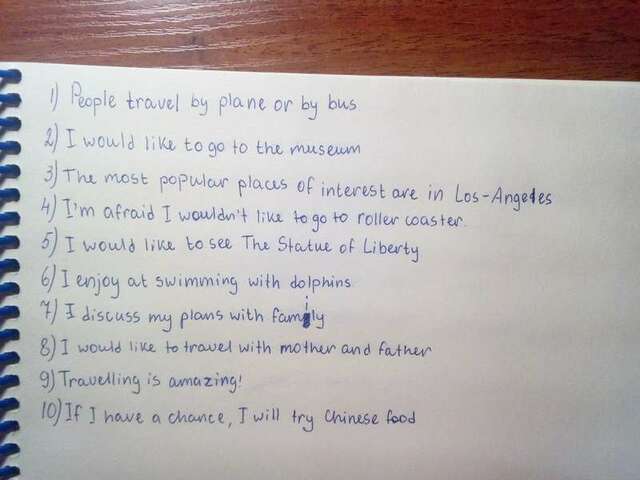 1) People travel by plane or by bus
2) I would like to go to the museum
3) The most popular places of interest are in Los-Angeles
4) I'm afraid I wouldn't like to go to roller coaster.
5) I would like to see The Statue of Liberty
6) I enjoy at swimming with dolphins
7) I discuss my plans with family
8) I would like to travel with mother and father
9) Travelling is amazing!
10) If I have a chance, I will try Chinese food